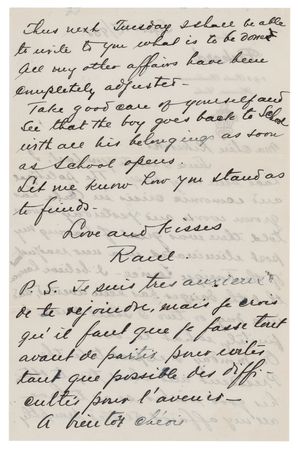 Thus next Tuesday I shall be able
to write to you what is to be done
All my other affairs have been
completely adjusted—
Take good care of yourself and
see that the boy goes back to School
with all his belongings as soon
as school opens.
Let me know how you stand as
to funds.
Love and Kisses
Raoul.
P.S. Je suis tres anxieux
de te rejoindre, mais je crois
qu'il faut que je fasse tout
avant de partir pour eviter
tant que possible des diffi-
cultés pour l'avenir—
A bientot